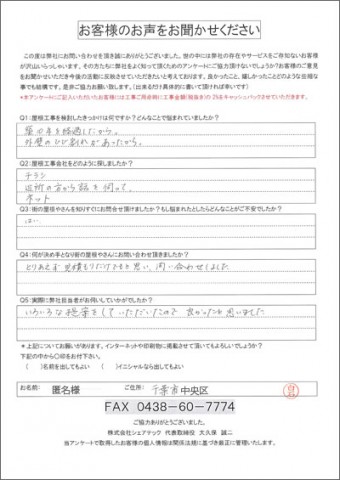 お客様のお声をお聞かせください
この度は弊社にお問い合わせを頂き誠にありがとうございました。世の中には弊社の存在やサービスをご存知ないお客様
が沢山いらっしゃいます。その方たちに弊社をよく知って頂くためのアンケートにご協力頂けないでしょうか?お客様のご意見
をお聞かせいただき今後の活動に反映させていただきたいと考えております。良かったこと、嬉しかったことどのような些細な
事でも結構です。是非ご協力お願い致します。(出来るだけ具体的に書いて頂ければ幸いです)
*本アンケートにご記入いただいたお客様には工事ご用命時に工事金額(税抜き)の2%をキャッシュバックさせていただきます。
Q1:屋根工事を検討したきっかけは何ですか?どんなことで悩まれていましたか?
築10年を経過したから。
外壁のひび割れがあったから。
Q2:屋根工事会社をどのように探しましたか?
チラシ
近所の方から話を伺って。
ネット
Q3:街の屋根やさんを知りすぐにお問合せ頂けましたか?もし悩まれたとしたらどんなことがご不安でしたか?
はい
Q4:何が決め手となり街の屋根やさんにお問い合わせ頂きましたか?
とりあえず見積もりだけでもと思い、問い合わせしました
Q5:実際に弊社担当者がお伺いしていかがでしたか?
いろいろな提案をしていただいたので良かったと思いました
*上記についてお願いがあります。インターネットや印刷物に掲載させて頂いてもよろしいでしょうか?
下記の中から〇印をお付下さい。
( )名前を出してもよい ( )イニシャルなら出してもよい
お名前: 匿名様 ご住所: 千葉市中央区
FAX 0438-60-7774
ご協力ありがとうございました。
株式会社シェアテック 代表取締役 大久保 誠二
当アンケートで取得したお客様の個人情報は関係法規に基づき厳正に管理いたします。